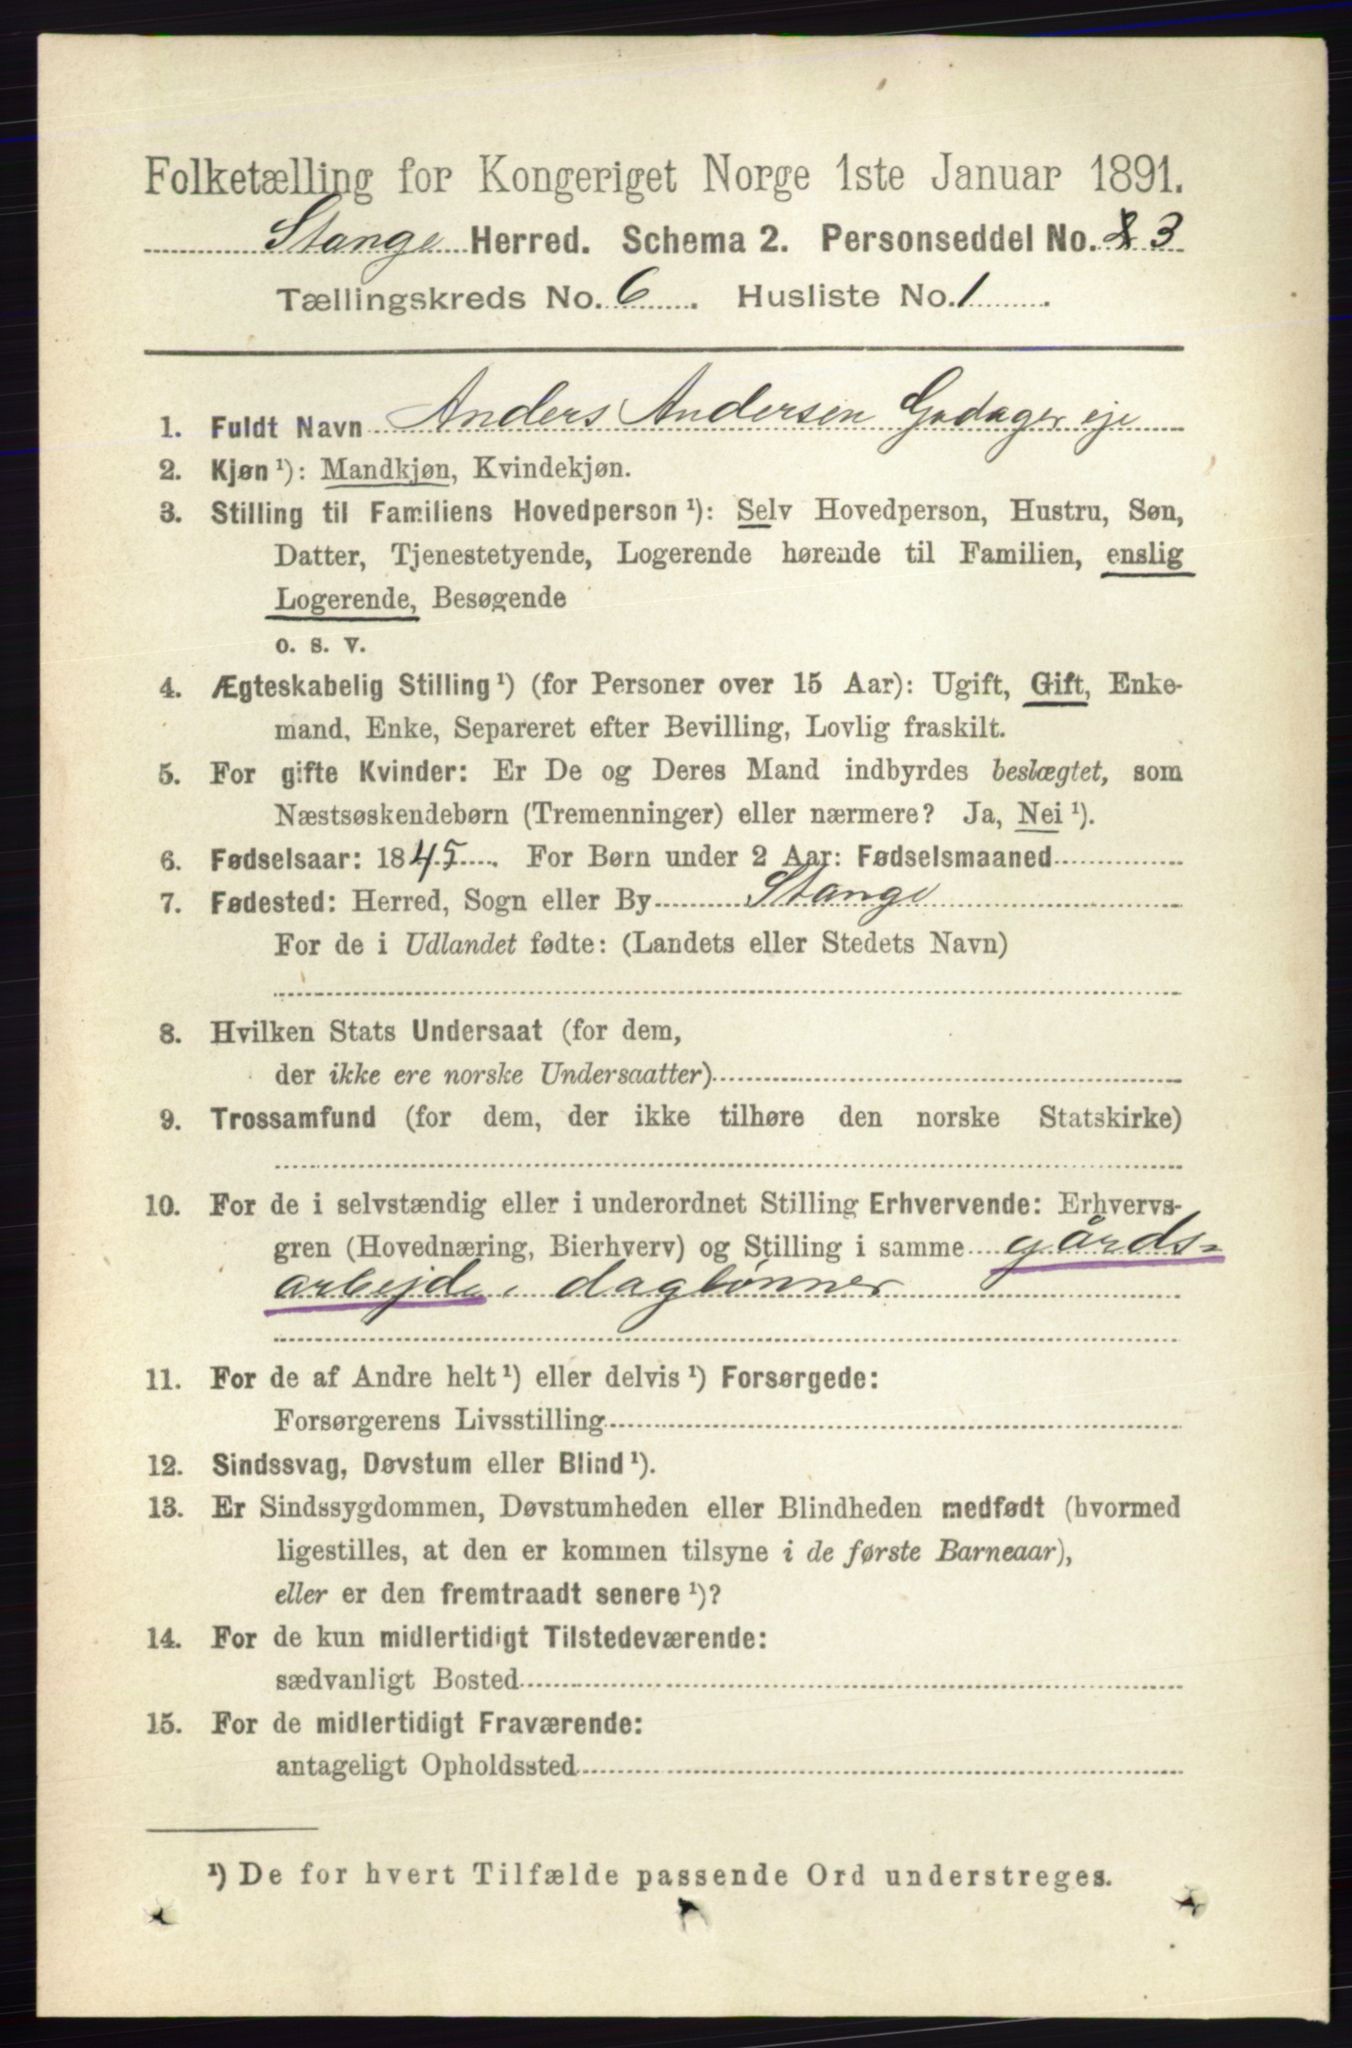 Folketælling for Kongeriget Norge 1ste Januar 1891.
Stange Herred. Schema 2. Personseddel No. 3
Tællingskreds No. 6. Husliste No. 1.
1. Fuldt Navn Anders Andersen Godager eje
2. Kjøn¹): Mandkjøn, Kvindekjøn.
3. Stilling til Familiens Hovedperson¹): Selv Hovedperson, Hustru, Søn,
Datter, Tjenestetyende, Logerende hørende til Familien, enslig
Logerende, Besøgende
o. s. v.
4. Ægteskabelig Stilling¹) (for Personer over 15 Aar): Ugift, Gift, Enke-
mand, Enke, Separeret efter Bevilling, Lovlig fraskilt.
5. For gifte Kvinder: Er De og Deres Mand indbyrdes beslægtet, som
Næstsøskendebørn (Tremenninger) eller nærmere? Ja, Nei¹).
6. Fødselsaar: 1845. For Børn under 2 Aar: Fødselsmaaned
7. Fødested: Herred, Sogn eller By Stange
For de i Udlandet fødte: (Landets eller Stedets Navn)
8. Hvilken Stats Undersaat (for dem,
der ikke ere norske Undersaatter)
9. Trossamfund (for dem, der ikke tilhøre den norske Statskirke)
10. For de i selvstændig eller i underordnet Stilling Erhvervende: Erhvervs-
gren (Hovednæring, Bierhverv) og Stilling i samme gårds-
arbejde, daglønner
11. For de af Andre helt¹) eller delvis¹) Forsørgede:
Forsørgerens Livsstilling
12. Sindssvag, Døvstum eller Blind¹).
13. Er Sindssygdommen, Døvstumheden eller Blindheden medfødt (hvormed
ligestilles, at den er kommen tilsyne i de første Barneaar),
eller er den fremtraadt senere¹)?
14. For de kun midlertidigt Tilstedeværende:
sædvanligt Bosted
15. For de midlertidigt Fraværende:
antageligt Opholdssted
¹) De for hvert Tilfælde passende Ord understreges.